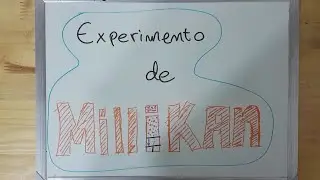 Experimento
de
Millikan